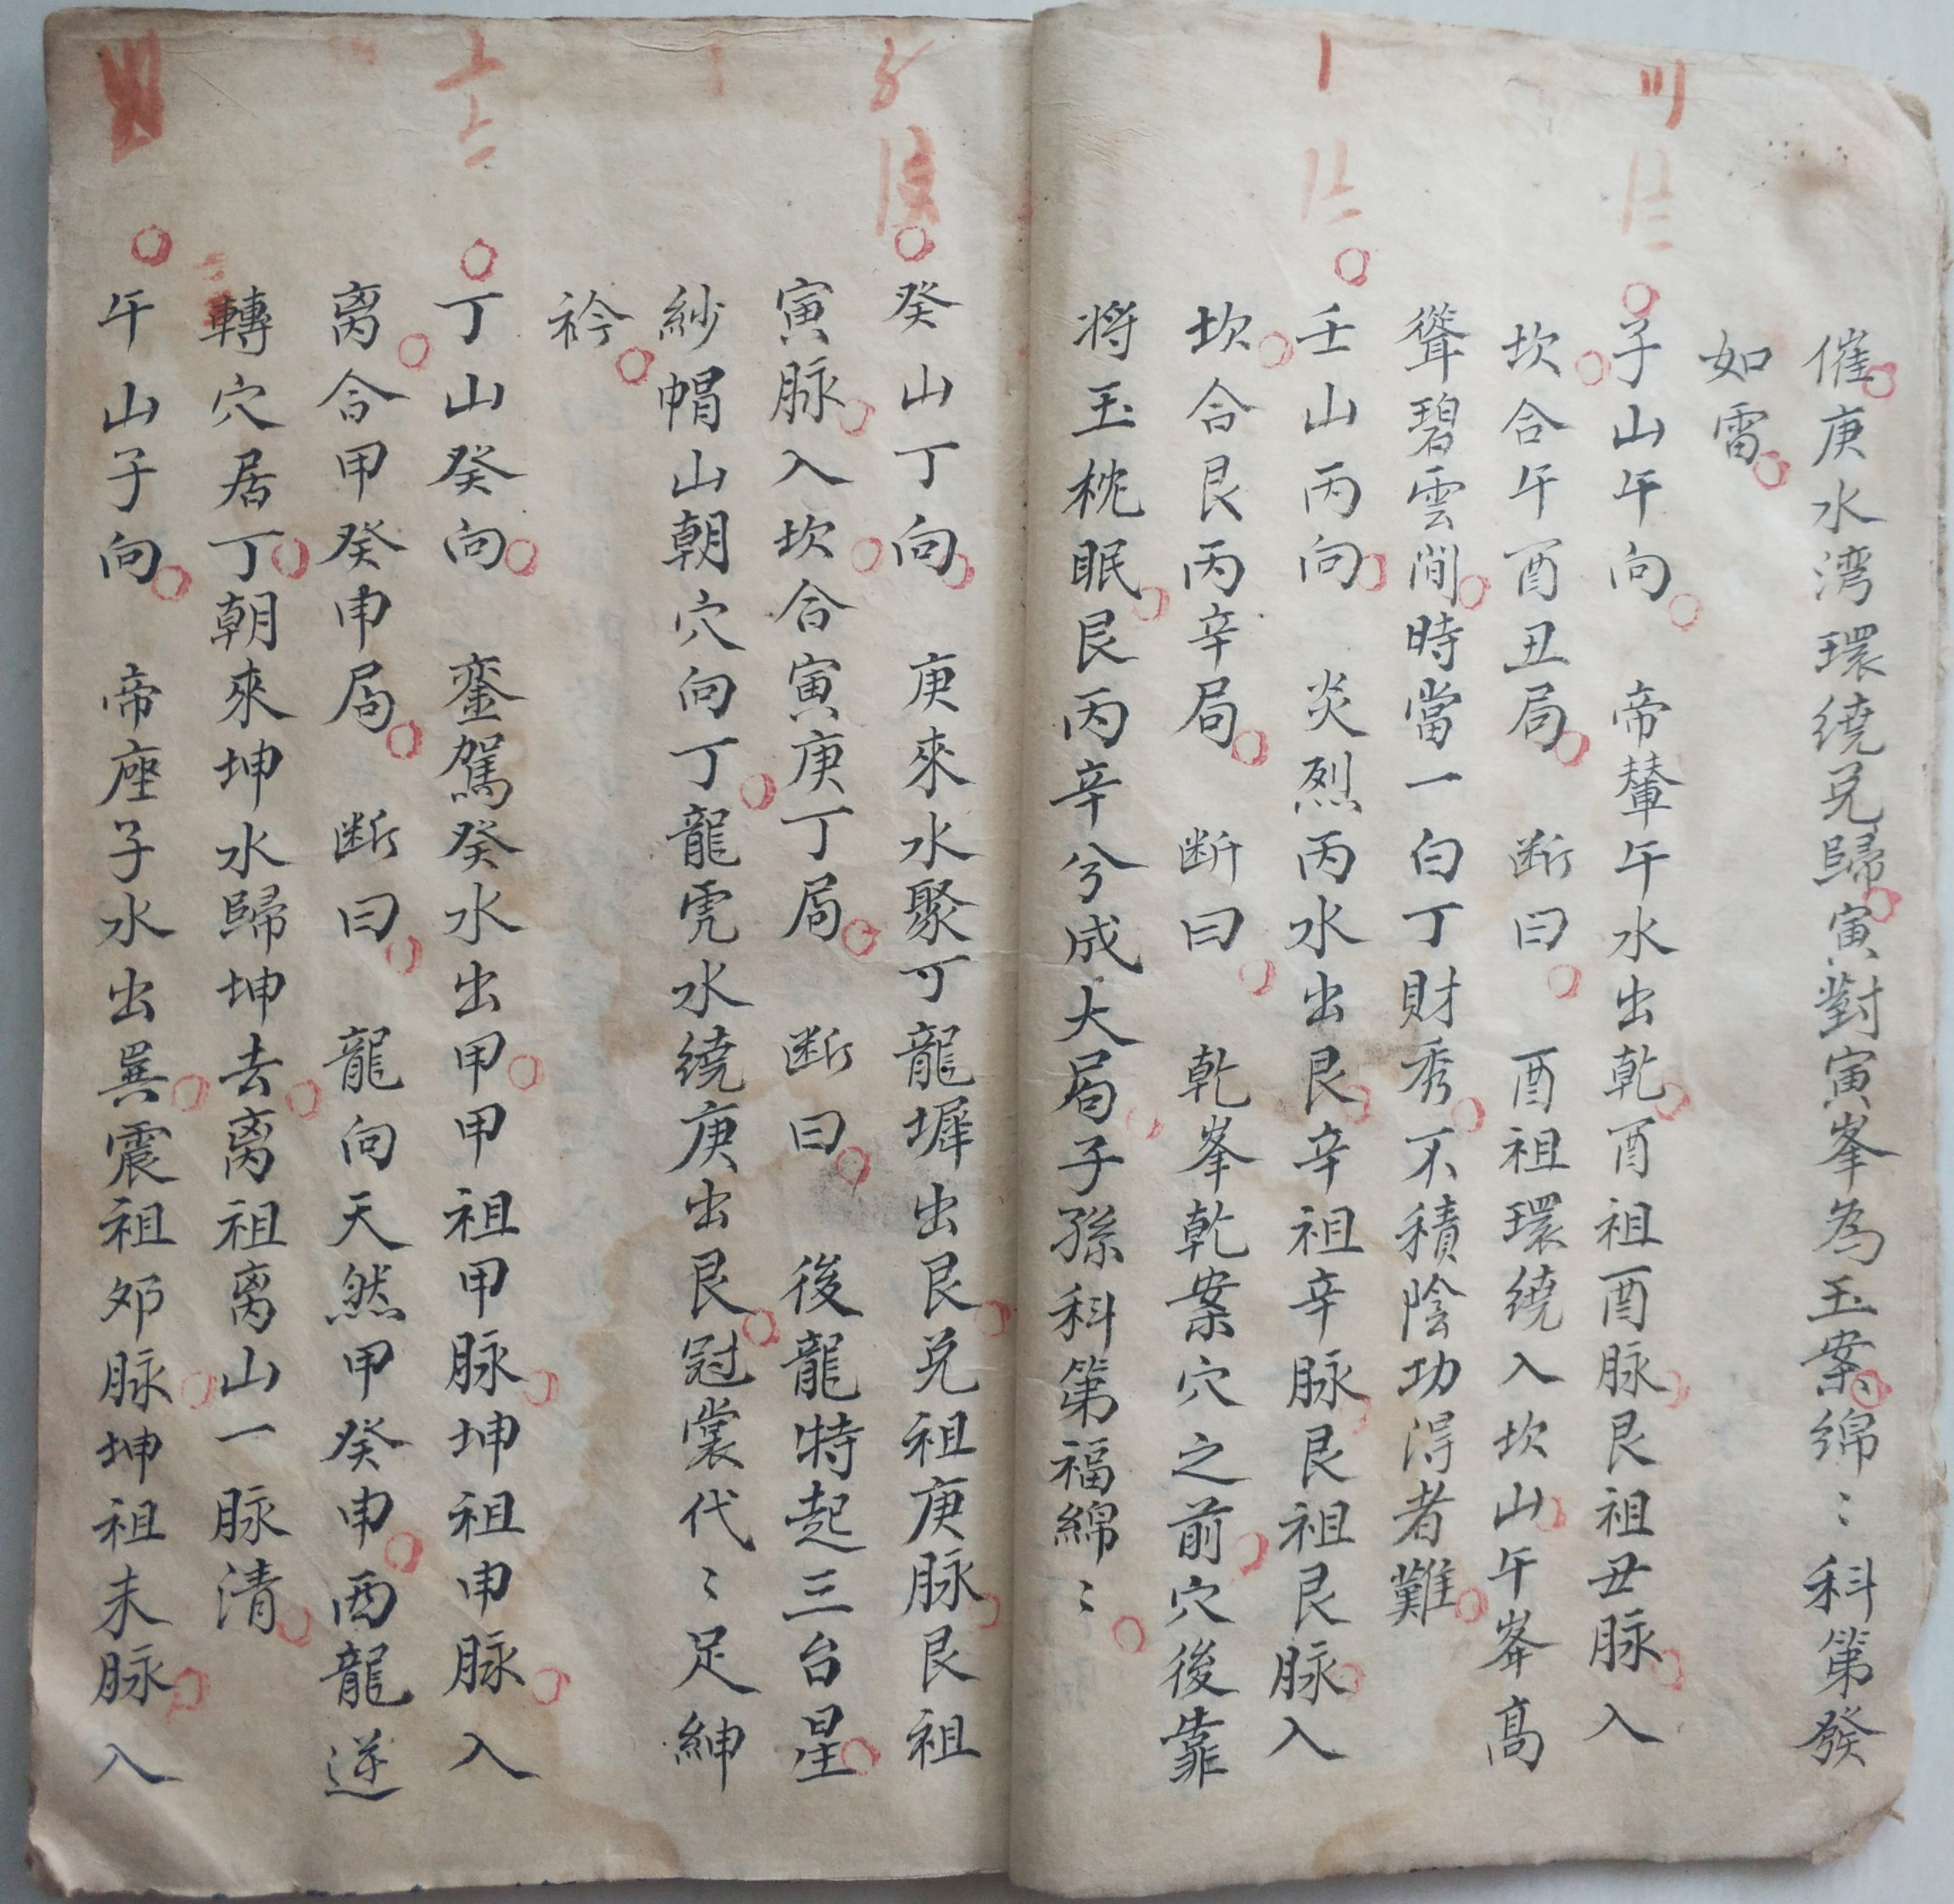 催庚水湾環繞兑歸寅對寅峯為玉案綿〻科第發
如雷
子山午向 帝輦午水出乾酉祖酉脉艮祖丑脉入
坎合午酉丑局 断曰 酉祖環繞入坎山午峯高
聳碧雲間時當一白丁財秀不積陰功得者難
壬山丙向 炎烈丙水出艮辛祖辛脉艮祖艮脉入
坎合艮丙辛局 断曰 乾峯乾案穴之前穴後靠
将玉枕眠艮丙辛分成大局子孫科第福綿〻
癸山丁向 庚來水聚丁龍墀出艮兑祖庚脉艮祖
寅脉入坎合寅庚丁局 断曰 後龍特起三台星
紗帽山朝穴向丁龍虎水繞庚出艮冠裳代〻足紳
衿
丁山癸向 鑾駕癸水出甲甲祖甲脉坤祖申脉入
离合甲癸申局 断曰 龍向天然甲癸申西龍逆
轉穴居丁朝來坤水歸坤去离祖离山一脉清
午山子向 帝座子水出巽震祖夘脉坤祖未脉入